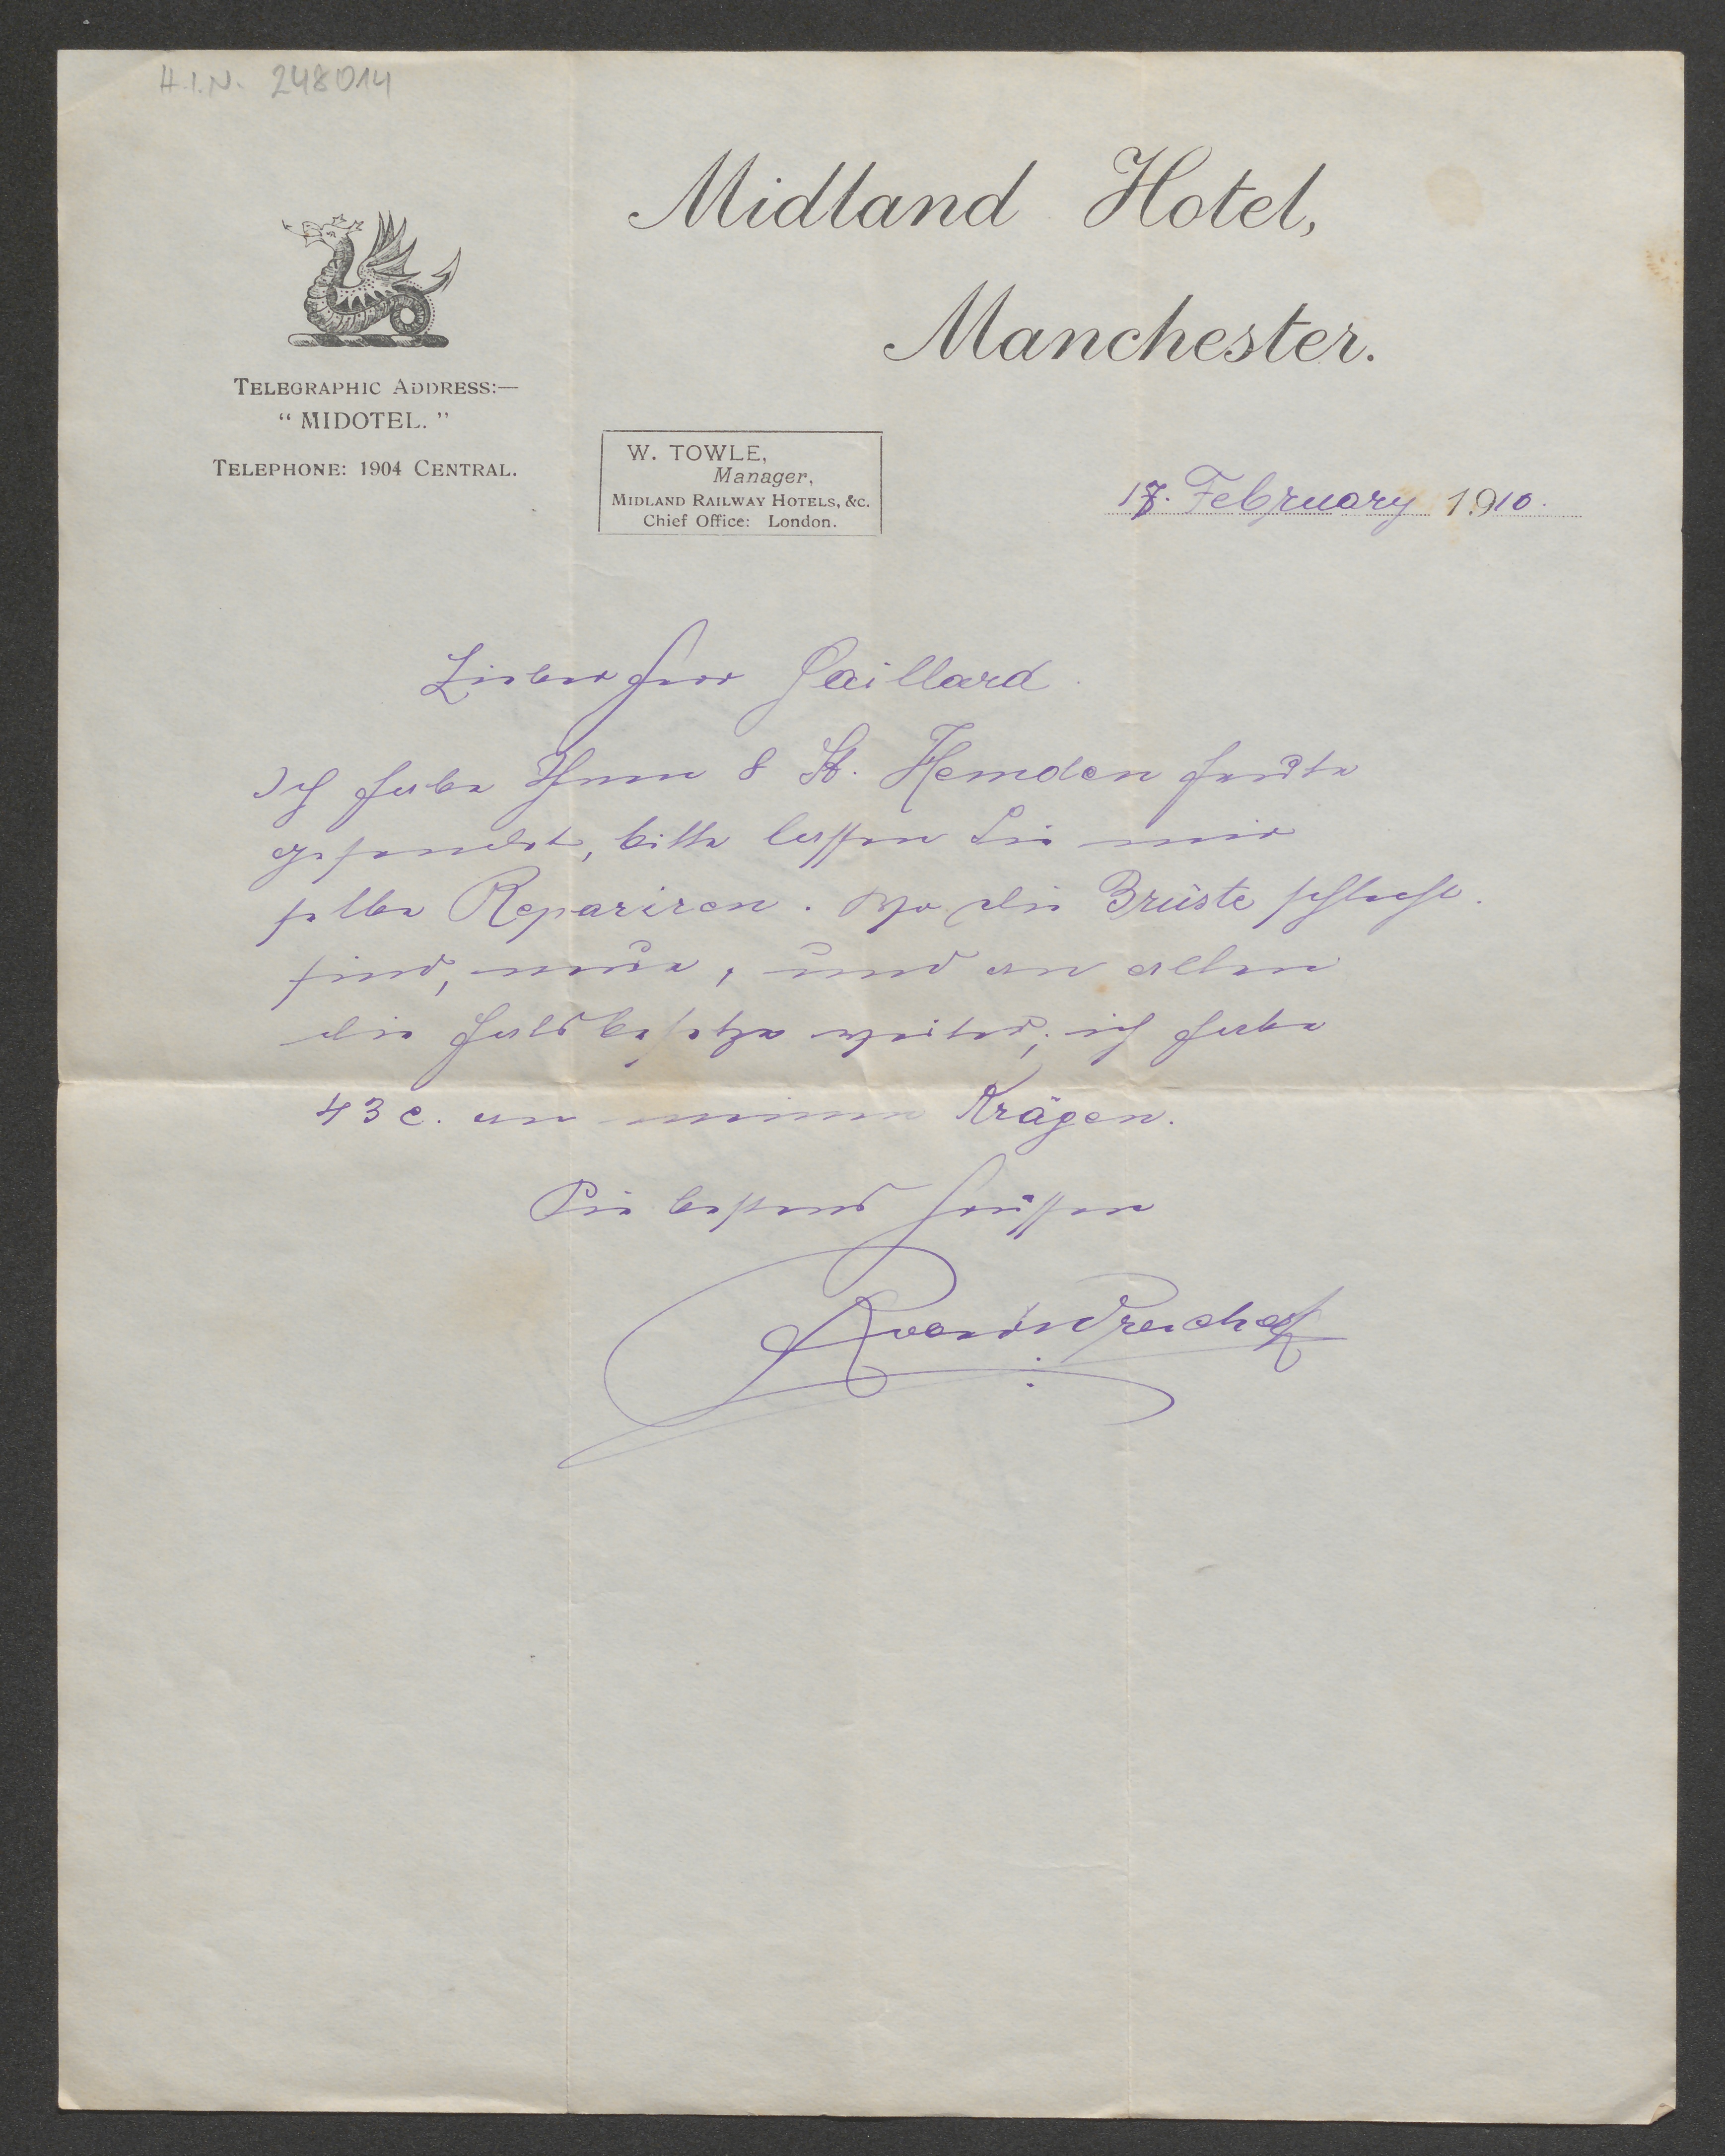 H.I.N. 248014
Midland Hotel,
Manchester.
TELEGRAPHIC ADDRESS:—
“MIDOTEL.”
TELEPHONE: 1904 CENTRAL.
W. TOWLE,
Manager,
MIDLAND RAILWAY HOTELS, &c.
Chief Office: London.
17. February 1910.
Lieber Herr Gaillard
Ich habe Ihnen 8 St. Hemden heute
gesendet, bitte lassen Sie mir
selbe Repariren. wo die Brüste schlecht
sind, neue, und an allen
die Halsbesetze weiter, ich habe
43 c. an meinen Krägen.
Sie bestens Grüssen